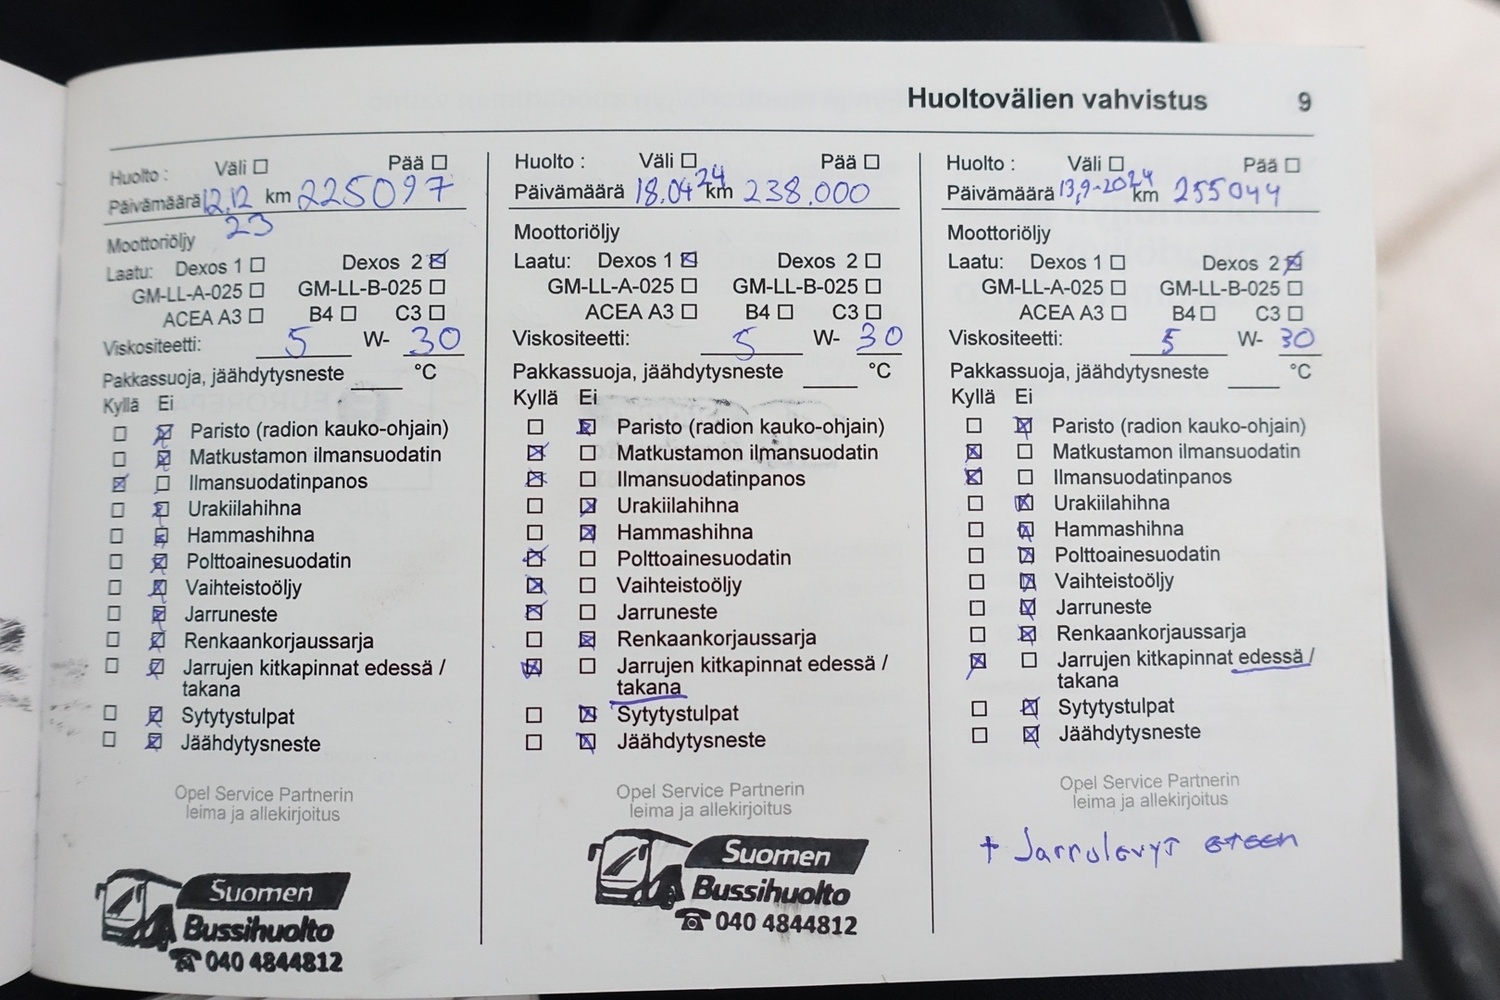 Huoltovälien vahvistus 9
Huolto : Väli ☐ Pää ☐
Päivämäärä 12.12 km 225097
23
Moottoriöljy
Laatu: Dexos 1 ☐ Dexos 2 ☒
GM-LL-A-025 ☐ GM-LL-B-025 ☐
ACEA A3 ☐ B4 ☐ C3 ☐
Viskositeetti: 5 W- 30
Pakkassuoja, jäähdytysneste ____ °C
Kyllä Ei
☐ ☒ Paristo (radion kauko-ohjain)
☐ ☒ Matkustamon ilmansuodatin
☒ ☐ Ilmansuodatinpanos
☐ ☒ Urakiilahihna
☐ ☒ Hammashihna
☐ ☒ Polttoainesuodatin
☐ ☒ Vaihteistoöljy
☐ ☒ Jarruneste
☐ ☒ Renkaankorjaussarja
☐ ☒ Jarrujen kitkapinnat edessä /
takana
☐ ☒ Sytytystulpat
☐ ☒ Jäähdytysneste
Opel Service Partnerin
leima ja allekirjoitus
Suomen
Bussihuolto
☎ 040 4844812
Huolto : Väli ☐ Pää ☐
Päivämäärä 18.04 24 km 238.000
Moottoriöljy
Laatu: Dexos 1 ☒ Dexos 2 ☐
GM-LL-A-025 ☐ GM-LL-B-025 ☐
ACEA A3 ☐ B4 ☐ C3 ☐
Viskositeetti: 5 W- 30
Pakkassuoja, jäähdytysneste ____ °C
Kyllä Ei
☐ ☒ Paristo (radion kauko-ohjain)
☒ ☐ Matkustamon ilmansuodatin
☒ ☐ Ilmansuodatinpanos
☐ ☒ Urakiilahihna
☐ ☒ Hammashihna
☒ ☐ Polttoainesuodatin
☒ ☐ Vaihteistoöljy
☒ ☐ Jarruneste
☐ ☒ Renkaankorjaussarja
☒ ☐ Jarrujen kitkapinnat edessä /
takana
☐ ☒ Sytytystulpat
☐ ☒ Jäähdytysneste
Opel Service Partnerin
leima ja allekirjoitus
Suomen
Bussihuolto
☎ 040 4844812
Huolto : Väli ☐ Pää ☐
Päivämäärä 13,9-2024 km 255044
Moottoriöljy
Laatu: Dexos 1 ☐ Dexos 2 ☒
GM-LL-A-025 ☐ GM-LL-B-025 ☐
ACEA A3 ☐ B4 ☐ C3 ☐
Viskositeetti: 5 W- 30
Pakkassuoja, jäähdytysneste ____ °C
Kyllä Ei
☐ ☒ Paristo (radion kauko-ohjain)
☒ ☐ Matkustamon ilmansuodatin
☒ ☐ Ilmansuodatinpanos
☐ ☒ Urakiilahihna
☐ ☒ Hammashihna
☐ ☒ Polttoainesuodatin
☐ ☒ Vaihteistoöljy
☐ ☒ Jarruneste
☐ ☒ Renkaankorjaussarja
☒ ☐ Jarrujen kitkapinnat edessä /
takana
☐ ☒ Sytytystulpat
☐ ☒ Jäähdytysneste
Opel Service Partnerin
leima ja allekirjoitus
+ Jarrulevyt eteen